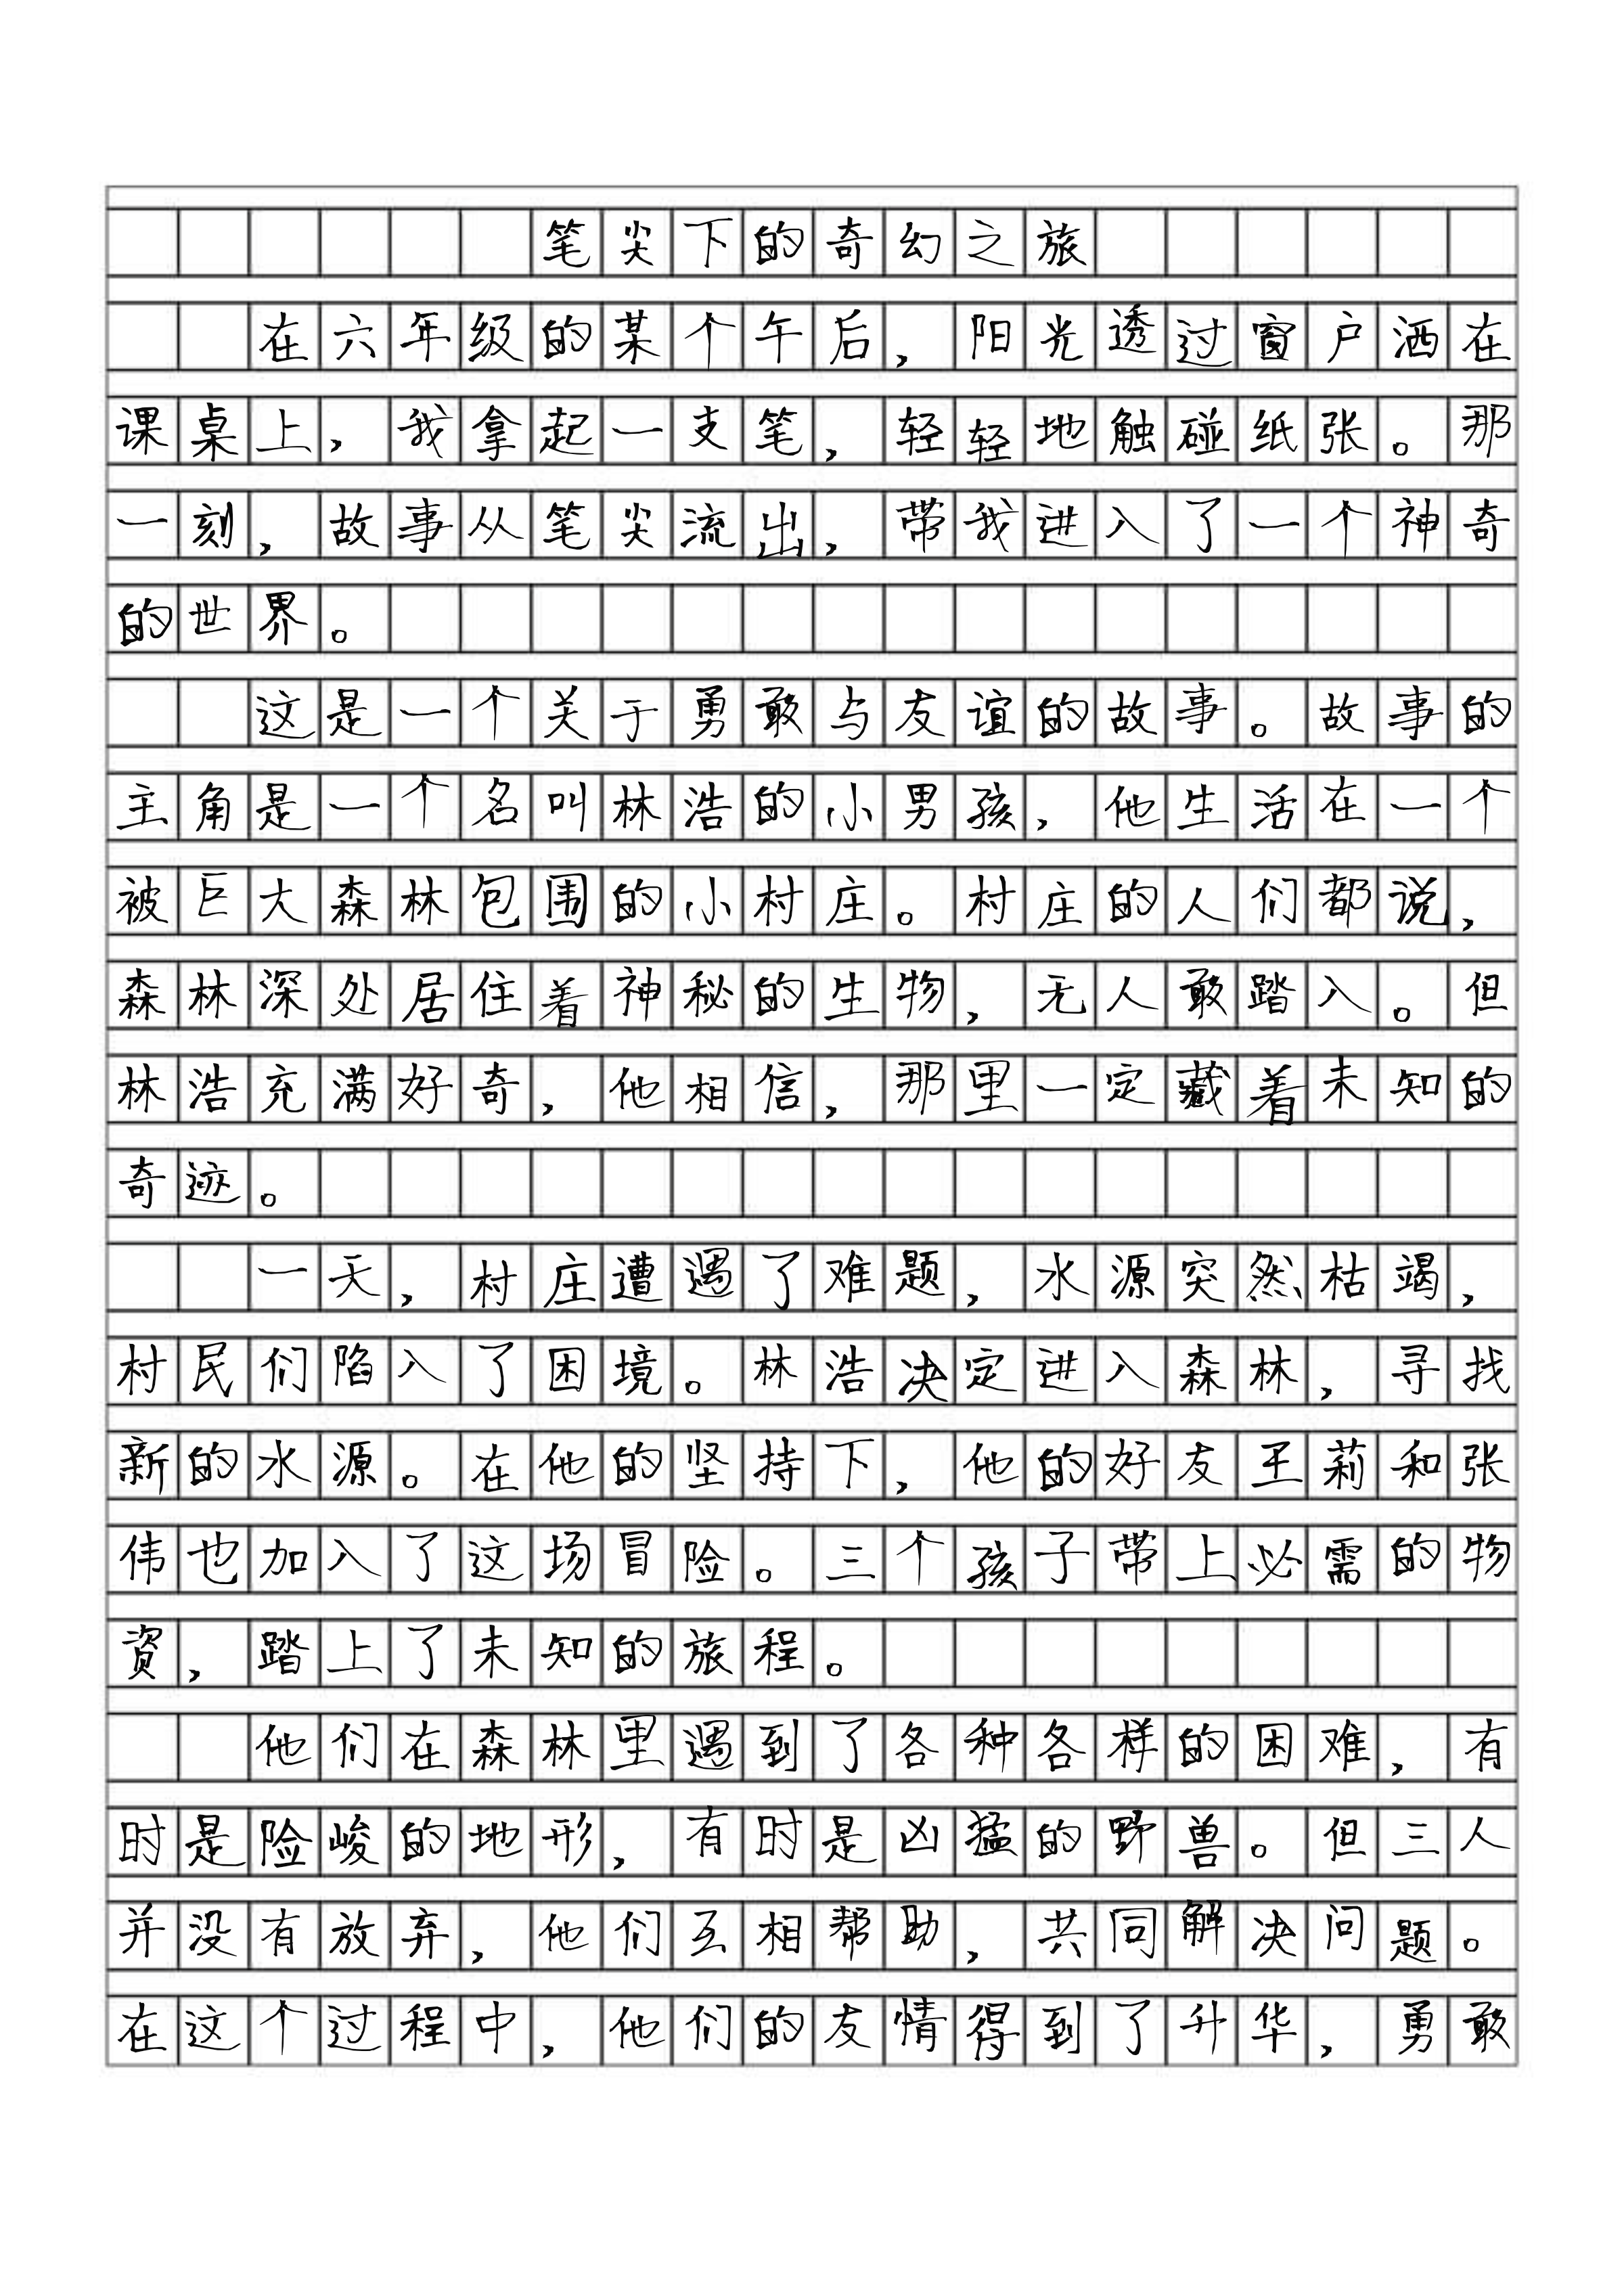 笔尖下的奇幻之旅
在六年级的某个午后，阳光透过窗户洒在
课桌上，我拿起一支笔，轻轻地触碰纸张。那
一刻，故事从笔尖流出，带我进入了一个神奇
的世界。
这是一个关于勇敢与友谊的故事。故事的
主角是一个名叫林浩的小男孩，他生活在一个
被巨大森林包围的小村庄。村庄的人们都说，
森林深处居住着神秘的生物，无人敢踏入。但
林浩充满好奇，他相信，那里一定藏着未知的
奇迹。
一天，村庄遭遇了难题，水源突然枯竭，
村民们陷入了困境。林浩决定进入森林，寻找
新的水源。在他的坚持下，他的好友王莉和张
伟也加入了这场冒险。三个孩子带上必需的物
资，踏上了未知的旅程。
他们在森林里遇到了各种各样的困难，有
时是险峻的地形，有时是凶猛的野兽。但三人
并没有放弃，他们互相帮助，共同解决问题。
在这个过程中，他们的友情得到了升华，勇敢